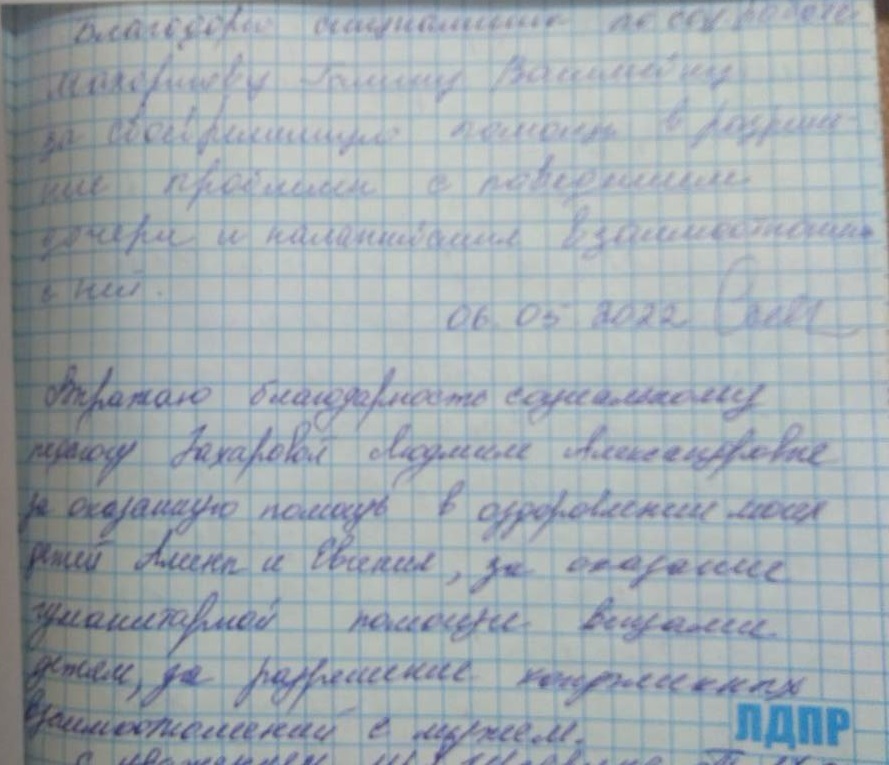 Благодарю специалиста по соц работе
Галину
за своевременную помощь в разреше-
ние проблемы с поведением
дочери и налаживания взаимоотношен
с ней.
06.05 2022
Выражаю благодарность социальному
педагогу Захаровой Людмиле Александровне
за оказанную помощь в оздоровлении моих
детей Алины и Евгения, за оказание
гуманитарной помощи вещами
детям, за разрешение конфликтных
взаимоотношений с мужем.
ЛДПР
С уважением